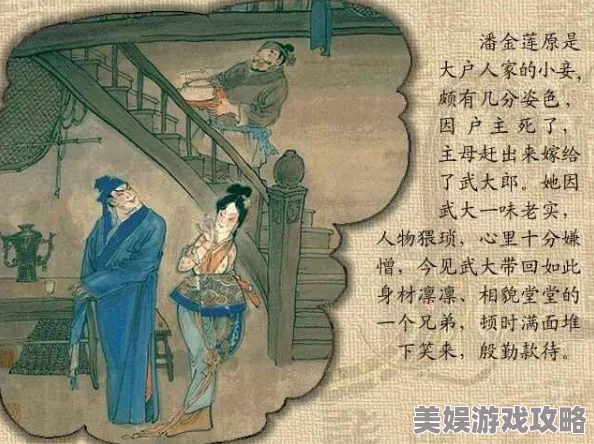 潘金莲原是
大户人家的小妾,
颇有几分姿色,
因户主死了,
主母赶出来嫁给
了武大郎。她因
武大一味老实,
人物猥琐,心里十分嫌
憎,今见武大带回如此
身材凛凛、相貌堂堂的
一个兄弟,顿时满面堆
下笑来,殷勤款待。
美娱游戏攻略